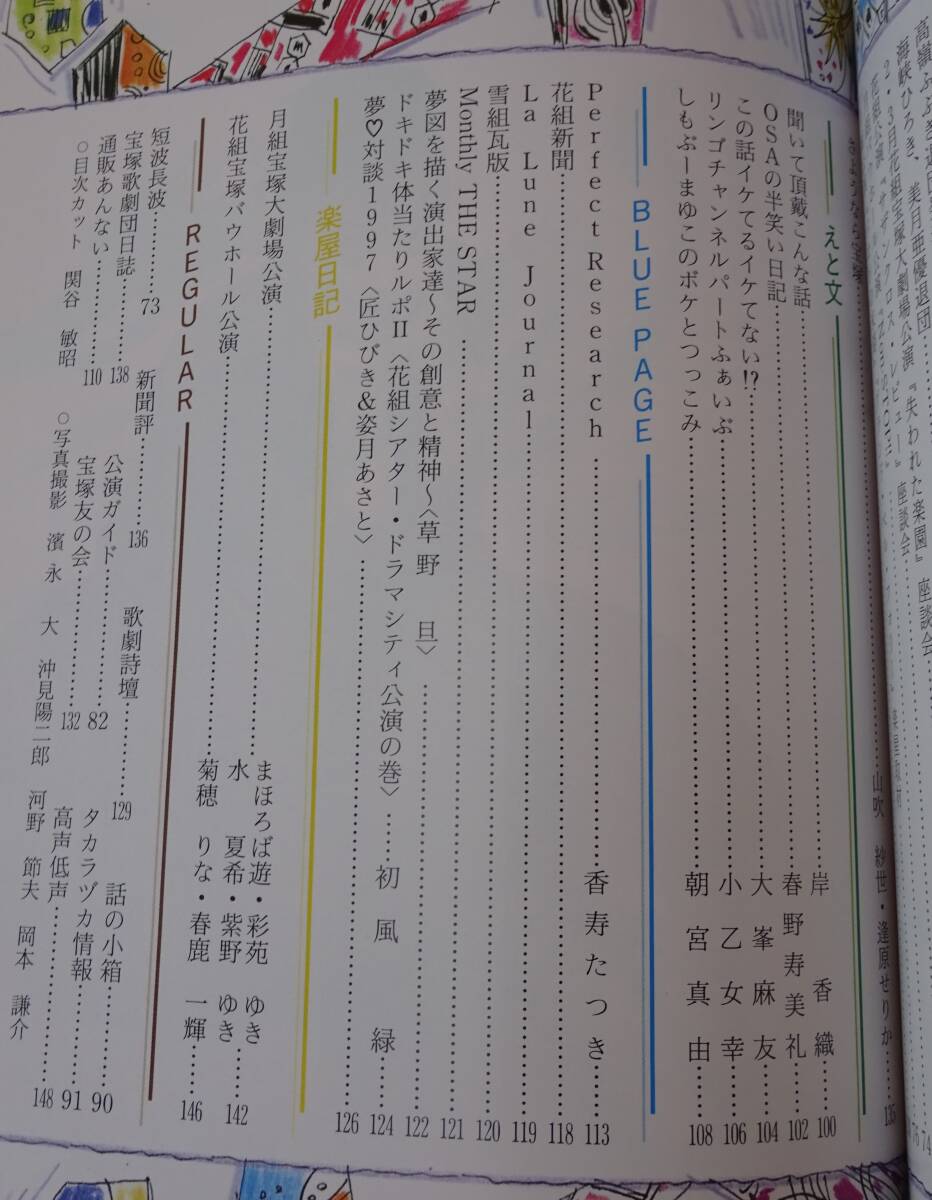 高嶺ふぶき退団
74
海峡ひろき、美月亜優退団
76
2・3月花組宝塚大劇場公演『失われた楽園』座談会
花組公演『サザンクロス・レビュー』座談会
さよなら宝塚
山吹 紗世・逢原せりか
135
えと文
聞いて頂戴、こんな話 岸 香織 100
OSAの半笑い日記 春野寿美礼 102
この話イケてるイケてない!? 大峯麻友 104
リンゴチャンネルパートふぁいぶ 小乙女幸 106
しもぷーまゆこのボケとつっこみ 朝宮真由 108
BLUE PAGE
Perfect Research 香寿たつき 113
花組新聞 118
La Lune Journal 119
雪組瓦版 120
Monthly THE STAR 121
夢図を描く演出家達〜その創意と精神〜〈草野 旦〉 122
ドキドキ体当たりルポII〈花組シアター・ドラマシティ公演の巻〉 初風 緑 124
夢♡対談1997〈匠ひびき&姿月あさと〉 126
楽屋日記
月組宝塚大劇場公演 まほろば遊・彩苑 ゆき
水 夏希・紫野 ゆき 142
花組宝塚バウホール公演 菊穂 りな・春鹿 一輝 146
REGULAR
短波長波 73
新聞評 136
歌劇詩壇 129
話の小箱 90
宝塚歌劇団日誌 138
公演ガイド 82
タカラヅカ情報 91
通販あんない 110
宝塚友の会 132
高声低声 148
○目次カット 関谷 敏昭
○写真撮影 濱永 大 沖見陽二郎 河野 節夫 岡本 謙介